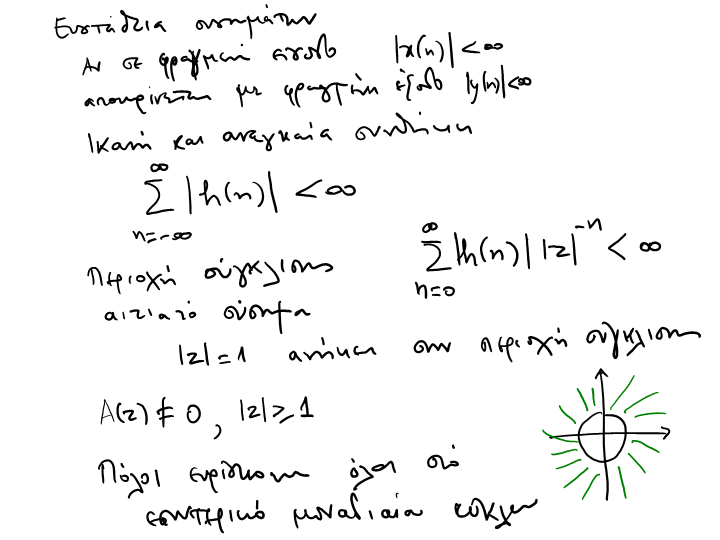 Ευστάθεια συστημάτων
Αν σε φραγμένη είσοδο |x(n)| < ∞
αποκρίνεται με φραγμένη έξοδο |y(n)| < ∞
Ικανή και αναγκαία συνθήκη
∞
∑ |h(n)| < ∞
n=-∞
∞
∑ |h(n)| |z|^{-n} < ∞
n=0
Περιοχή σύγκλισης
αιτιατό σύστημα
|z| = 1 ανήκει στην περιοχή σύγκλισης
A(z) ≠ 0, |z| ≥ 1
Πόλοι ευρίσκονται όλοι στο
εσωτερικό μοναδιαία κύκλου